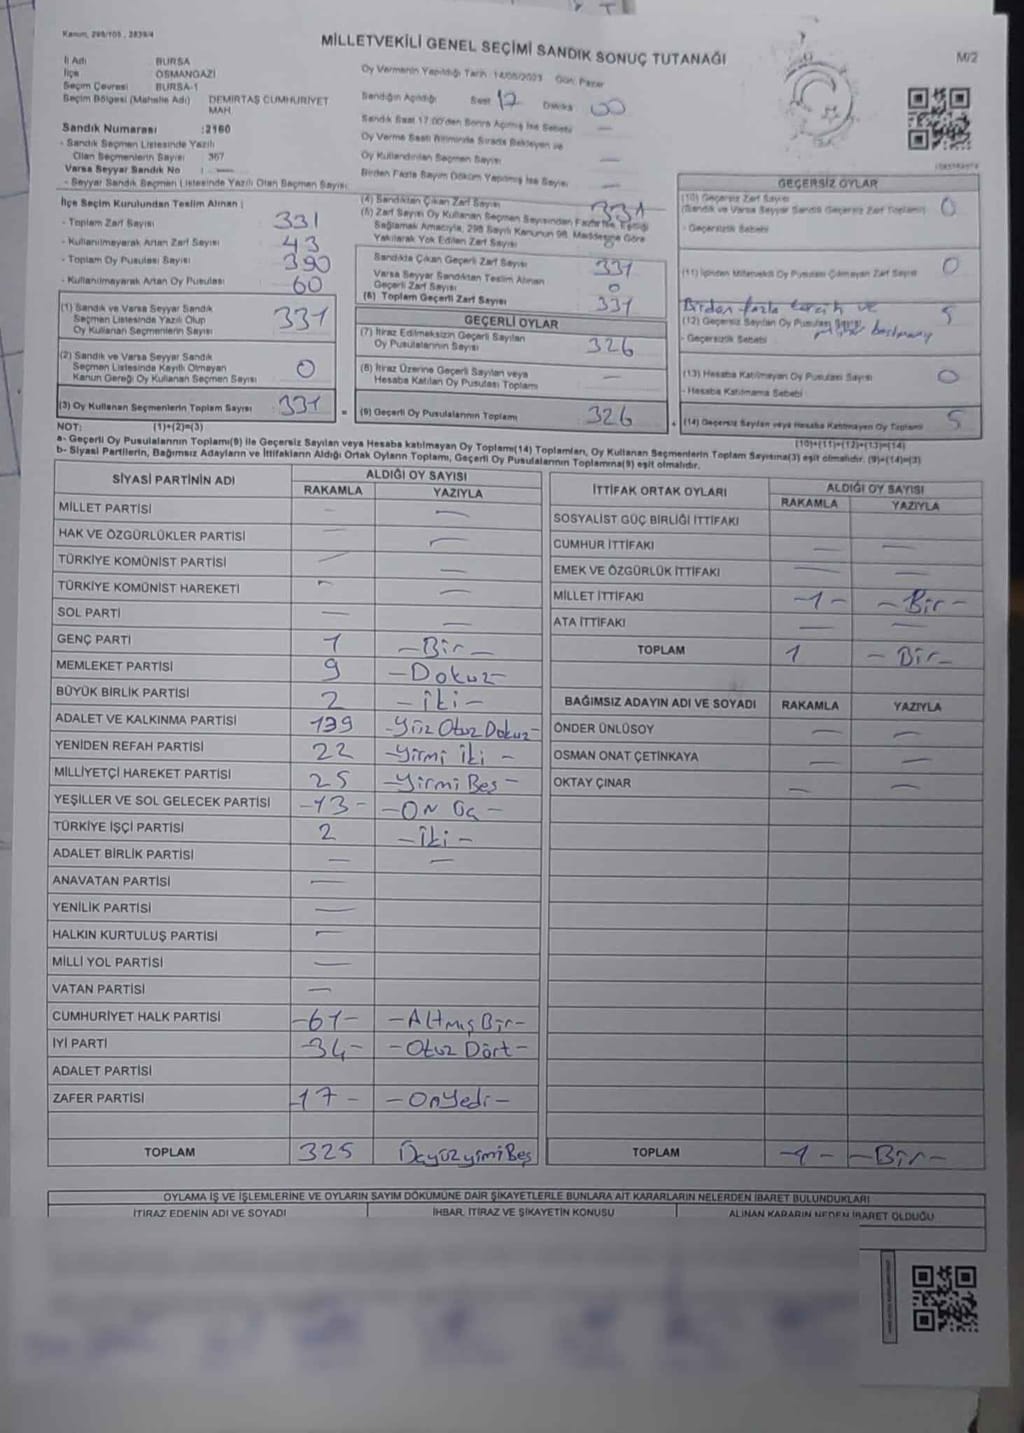 Kanun, 298/105 , 2839/4
MİLLETVEKİLİ GENEL SEÇİMİ SANDIK SONUÇ TUTANAĞI
M/2
İl Adı BURSA
İlçe OSMANGAZİ
Seçim Çevresi BURSA-1
Seçim Bölgesi (Mahalle Adı) DEMİRTAŞ CUMHURİYET MAH.
Sandık Numarası :2160
- Sandık Seçmen Listesinde Yazılı
Olan Seçmenlerin Sayısı 367
Varsa Seyyar Sandık No : —
- Seyyar Sandık Seçmen Listesinde Yazılı Olan Seçmen Sayısı
Oy Vermenin Yapıldığı Tarih 14/05/2023 Gün: Pazar
Sandığın Açıldığı Saat 17 Dakika 00
Sandık Saat 17:00'den Sonra Açılmış İse Sebebi —
Oy Verme Saati Bitiminde Sırada Bekleyen ve
Oy Kullandırılan Seçmen Sayısı —
Birden Fazla Sayım Döküm Yapılmış İse Sayısı —
İlçe Seçim Kurulundan Teslim Alınan ;
- Toplam Zarf Sayısı
- Kullanılmayarak Artan Zarf Sayısı 43
- Toplam Oy Pusulası Sayısı 390
- Kullanılmayarak Artan Oy Pusulası 60
(1) Sandık ve Varsa Seyyar Sandık
Seçmen Listesinde Yazılı Olup
Oy Kullanan Seçmenlerin Sayısı 331
(2) Sandık ve Varsa Seyyar Sandık
Seçmen Listesinde Kayıtlı Olmayan
Kanun Gereği Oy Kullanan Seçmen Sayısı 0
(3) Oy Kullanan Seçmenlerin Toplam Sayısı 331
(4) Sandıktan Çıkan Zarf Sayısı 331
(5) Zarf Sayısı Oy Kullanan Seçmen Sayısından Fazla İse, Eşitliği
Sağlamak Amacıyla, 298 Sayılı Kanunun 98. Maddesine Göre
Yakılarak Yok Edilen Zarf Sayısı
Sandıkta Çıkan Geçerli Zarf Sayısı 331
Varsa Seyyar Sandıktan Teslim Alınan
Geçerli Zarf Sayısı 0
(6) Toplam Geçerli Zarf Sayısı 331
GEÇERLİ OYLAR
(7) İtiraz Edilmeksizin Geçerli Sayılan
Oy Pusulalarının Sayısı 326
(8) İtiraz Üzerine Geçerli Sayılan veya
Hesaba Katılan Oy Pusulası Toplamı —
= (9) Geçerli Oy Pusulalarının Toplamı 326
GEÇERSİZ OYLAR
(10) Geçersiz Zarf Sayısı
(Sandık ve Varsa Seyyar Sandık Geçersiz Zarf Toplamı) 0
- Geçersizlik Sebebi
(11) İçinden Milletvekili Oy Pusulası Çıkmayan Zarf Sayısı 0
Birden fazla tercih ve
(12) Geçersiz Sayılan Oy Pusulası Sayısı 5
- Geçersizlik Sebebi
(13) Hesaba Katılmayan Oy Pusulası Sayısı 0
- Hesaba Katılmama Sebebi
+ (14) Geçersiz Sayılan veya Hesaba Katılmayan Oy Toplamı 5
NOT: (1)+(2)=(3)
(10)+(11)+(12)+(13)=(14)
a- Geçerli Oy Pusulalarının Toplamı(9) ile Geçersiz Sayılan veya Hesaba katılmayan Oy Toplamı(14) Toplamları, Oy Kullanan Seçmenlerin Toplam Sayısına(3) eşit olmalıdır. (9)+(14)=(3)
b- Siyasi Partilerin, Bağımsız Adayların ve İttifakların Aldığı Ortak Oyların Toplamı, Geçerli Oy Pusulalarının Toplamına(9) eşit olmalıdır.
SİYASİ PARTİNİN ADI ALDIĞI OY SAYISI
RAKAMLA YAZIYLA
MİLLET PARTİSİ — —
HAK VE ÖZGÜRLÜKLER PARTİSİ — —
TÜRKİYE KOMÜNİST PARTİSİ — —
TÜRKİYE KOMÜNİST HAREKETİ — —
SOL PARTİ — —
GENÇ PARTİ 1 -Bir-
MEMLEKET PARTİSİ 9 -Dokuz-
BÜYÜK BİRLİK PARTİSİ 2 -İki-
ADALET VE KALKINMA PARTİSİ 139 -Yüz Otuz Dokuz-
YENİDEN REFAH PARTİSİ 22 -Yirmi İki-
MİLLİYETÇİ HAREKET PARTİSİ 25 -Yirmi Beş-
YEŞİLLER VE SOL GELECEK PARTİSİ -13- -ON Üç-
TÜRKİYE İŞÇİ PARTİSİ 2 -İki-
ADALET BİRLİK PARTİSİ — —
ANAVATAN PARTİSİ —
YENİLİK PARTİSİ —
HALKIN KURTULUŞ PARTİSİ —
MİLLİ YOL PARTİSİ —
VATAN PARTİSİ —
CUMHURİYET HALK PARTİSİ -61- -Altmış Bir-
İYİ PARTİ -34- -Otuz Dört-
ADALET PARTİSİ
ZAFER PARTİSİ -17- -Onyedi-
TOPLAM 325 Üçyüzyirmi Beş
İTTİFAK ORTAK OYLARI ALDIĞI OY SAYISI
RAKAMLA YAZIYLA
SOSYALİST GÜÇ BİRLİĞİ İTTİFAKI
CUMHUR İTTİFAKI — —
EMEK VE ÖZGÜRLÜK İTTİFAKI — —
MİLLET İTTİFAKI -1- -Bir-
ATA İTTİFAKI — —
TOPLAM 1 -Bir-
BAĞIMSIZ ADAYIN ADI VE SOYADI RAKAMLA YAZIYLA
ÖNDER ÜNLÜSOY — —
OSMAN ONAT ÇETİNKAYA — —
OKTAY ÇINAR — —
TOPLAM -1- -Bir-
OYLAMA İŞ VE İŞLEMLERİNE VE OYLARIN SAYIM DÖKÜMÜNE DAİR ŞİKAYETLERLE BUNLARA AİT KARARLARIN NELERDEN İBARET BULUNDUKLARI
İTİRAZ EDENİN ADI VE SOYADI İHBAR, İTİRAZ VE ŞİKAYETİN KONUSU ALINAN KARARIN NEDEN İBARET OLDUĞU